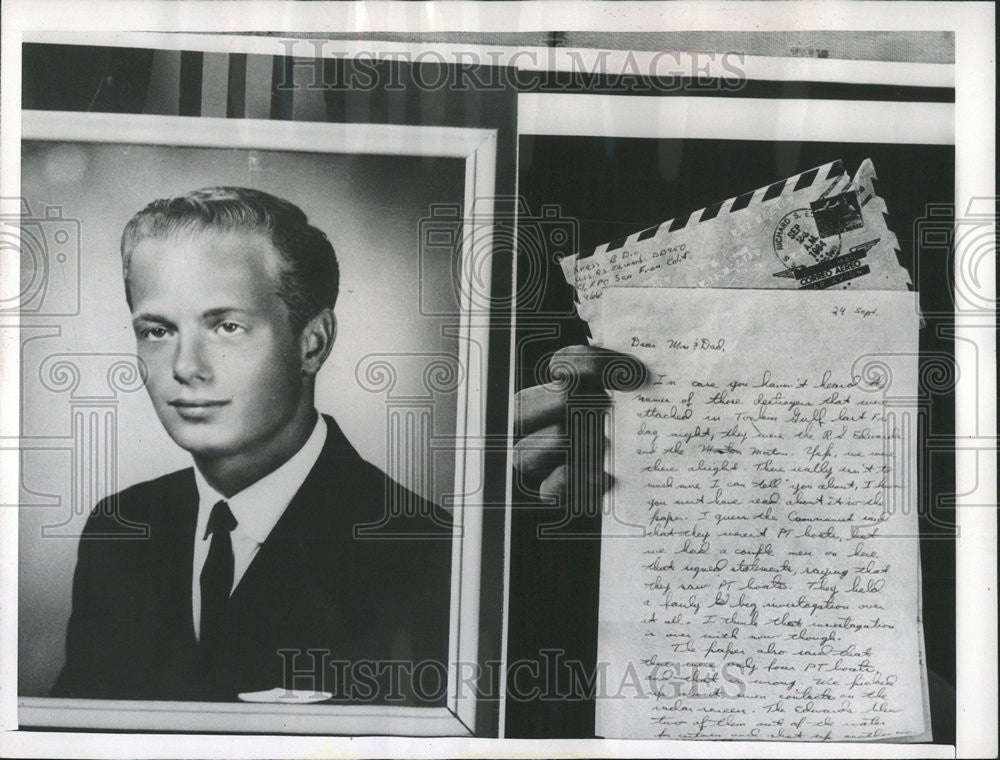 HISTORIC IMAGES
Kress B D.
U.S.S. R.S. Edwards DD950
C/o FPO San Fran. Calif.
S. RICHARD S.
SEP
A.M.
1964
CORREO AEREO
24 Sept.
Dear Mom & Dad,
In case you haven't heard the
names of those destroyers that were
attacked in Tonkin Gulf last Fri
day night, they were the R S Edwards
and the Morton. Yep, we were
there alright. There really isn't to
much more I can tell you about, I know
you must have read about it in the
paper. I guess the Communist said
that they weren't PT boats, but
we had a couple men on here
that signed statements, saying that
they saw PT boats. They held
a fairly big investagation over
it all. I think that investagation
is over with now though.
The paper also said that
there were only four PT boats,
and that's wrong. We picked
up about seven contacts on the
radar screen. The Edwards blew
two of them out of the water
for certain and shot up another one
HISTORIC IMAGES